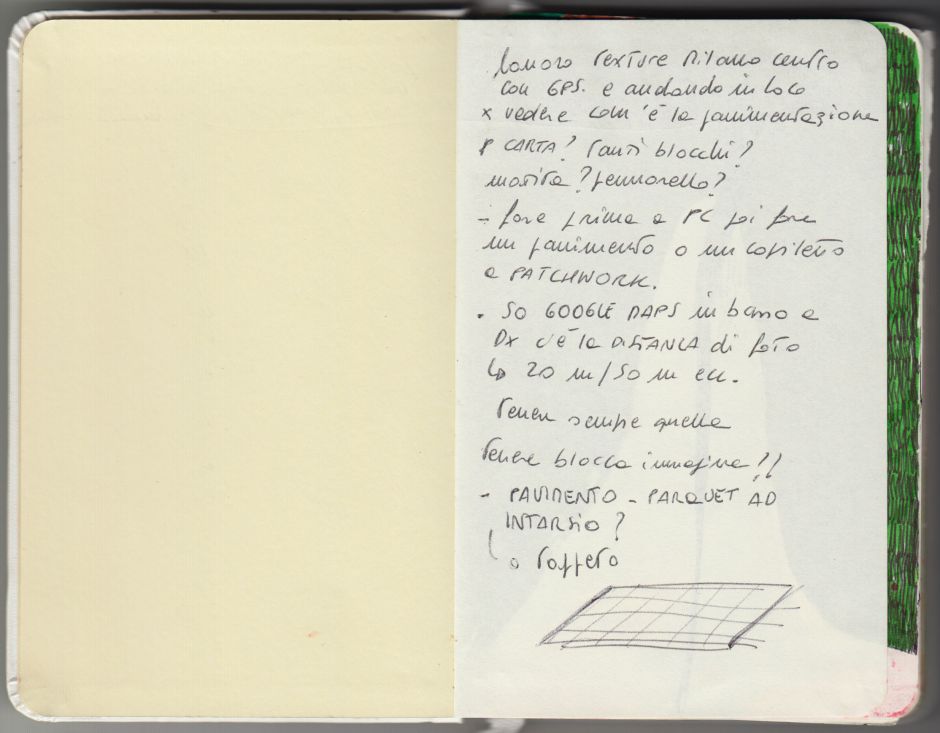 lavoro texture Milano centro
con GPS. e andando in loco
x vedere com'è la pavimentazione
CARTA? tanti blocchi?
matita? pennarello?
- fare prima a PC poi fare
un pavimento o un copriletto
a PATCHWORK.
. SO GOOGLE MAPS in basso a
DX c'è la DISTANZA di foto
↳ 20 m/50 m ecc.
Tenere sempre quella
Tenere blocco immagine!!
- PAVIMENTO - PARQUET AD
INTARSIO?
o Tappeto